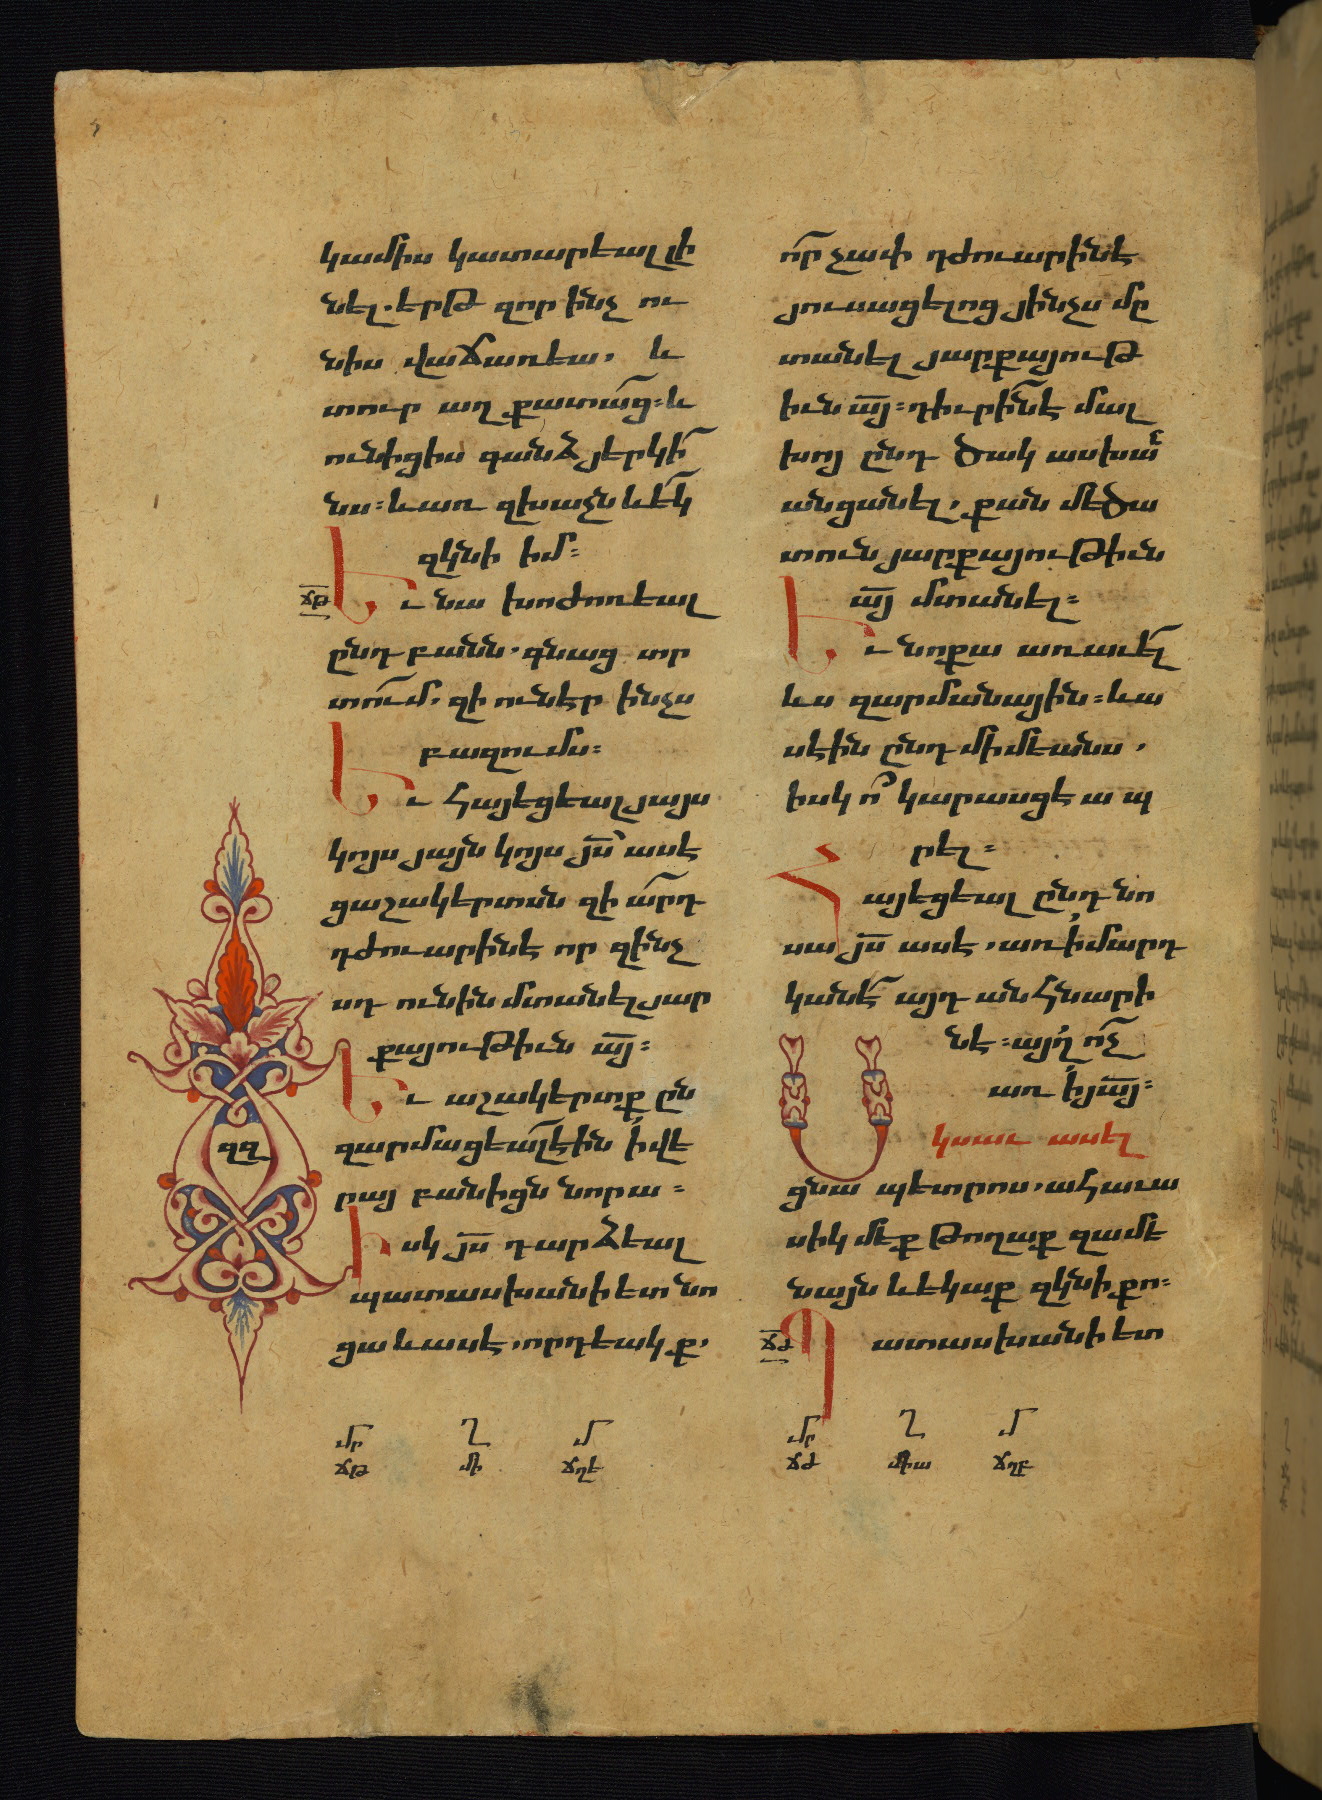 կամիս կատարեալ լի
նել. երթ զոր ինչ ու
նիս վաճառեա, և
տուր աղքատաց։ և
ունիցիս գանձ յերկի
նս։ և առ զխաչն և եկ
զկնի իմ։
ճթ
Եւ նա խոժոռեալ
ընդ բանն, գնաց տր
տում, զի ունէր ինչս
բազումս։
Եւ հայեցեալ յայս
կոյս յայն կոյս յս ասէ
ցաշակերտսն զի արդ
դժուարին է որ զինչ
սդ ունին մտանել յար
քայութիւն այ։
Եւ աշակերտք ըն
զզ
զարմացեալ էին ի վե
րայ բանիցն նորա։
Իսկ յս դարձեալ
պատասխանի ետ նո
ցա և ասէ, որդեակք,
մր ղ մ
ճթ մի ճղէ
որ չափ դժուարին է
յուսացելոց յինչս մը
տանել յարքայութ
իւն այ։ դիւրին է մալ
խոյ ընդ ծակ ասխան
անցանել, քան մեծա
տուն յարքայութիւն
այ մտանել։
Եւ նոքա առաւել
ևս զարմանային։ և ա
սէին ընդ միմեանս,
իսկ ո կարասցէ ապ
րել։
Հայեցեալ ընդ նո
սա յս ասէ, առ ի մարդ
կանէ այդ անհնարի
ն է։ այղ ոչ
առ ի յայ։
Սկսաւ ասել
ցնա պետրոս, ահաւա
սիկ մեք թողաք զամե
նայն և եկաք զկնի քո։
ճժ
Պատասխանի ետ
մր ղ մ
ճժ միա ճղբ